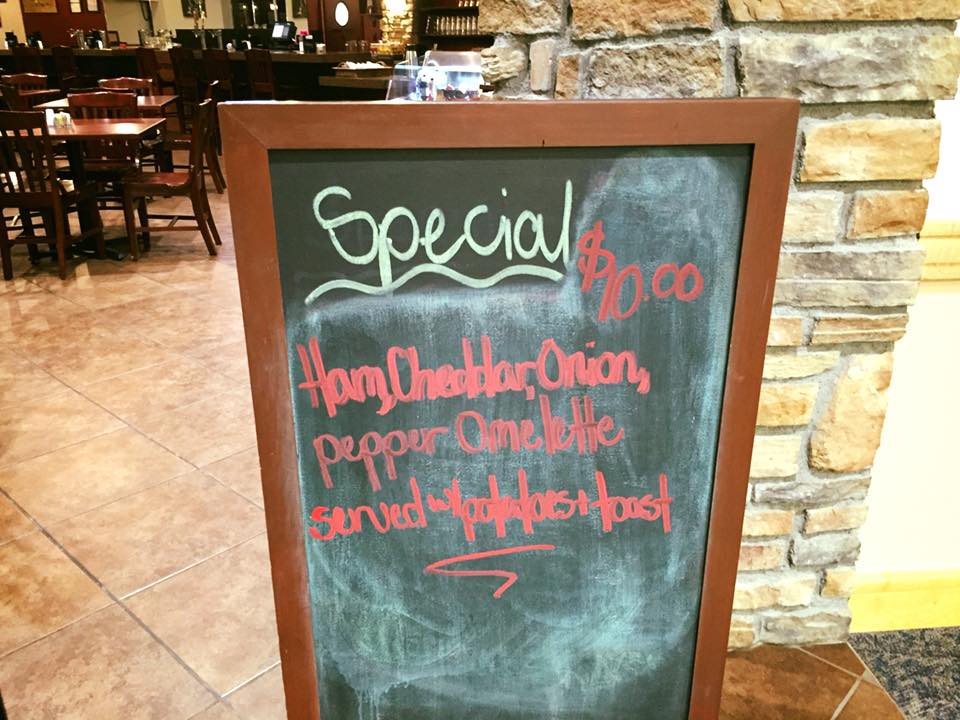 Special
$10.00
Ham, Cheddar, Onion,
pepper Omelette
served w/potatoes + toast